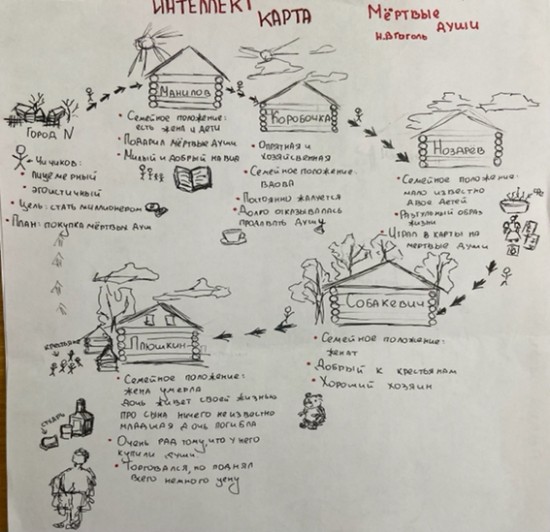 ИНТЕЛЛЕКТ
КАРТА
Мёртвые
души
Н.В Гоголь
Город N
Чичиков:
лицемерный
эгоистичный
Цель: стать миллионером
План: покупка мёртвых душ
Манилов
Семейное положение:
есть жена и дети
Подарил мёртвые души
Милый и добрый на вид
Коробочка
Опрятная и
хозяйственная
Семейное положение:
вдова
Постоянно жалуется
Долго отказывалась
продавать душу
Ноздрев
Семейное положение:
мало известно
двое детей
Разгульный образ
жизни
Играл в карты на
мертвые души
Собакевич
Семейное положение:
женат
Добрый к крестьянам
Хороший хозяин
Плюшкин
крестьяне
Семейное положение:
жена умерла
дочь живет своей жизнью
про сына ничего неизвестно
младшая дочь погибла
Очень рад тому, что у него
купили души.
Торговался, но поднял
всего немного цену
сухарь